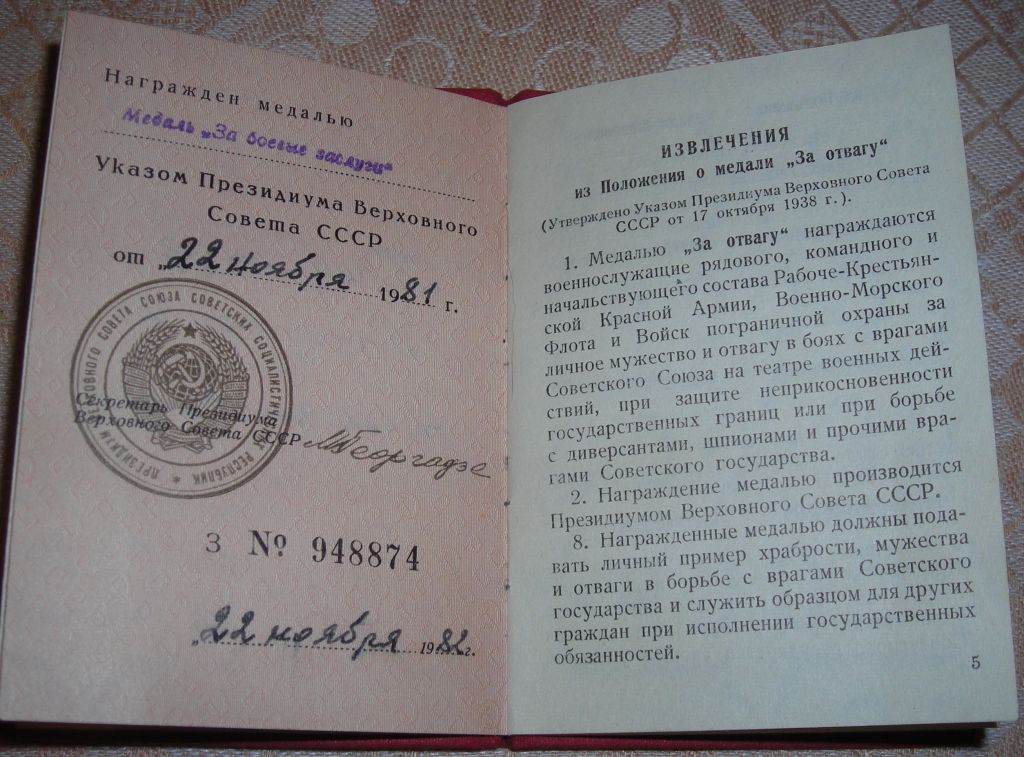 Награжден медалью
Медаль „За боевые заслуги"
Указом Президиума Верховного
Совета СССР
от „22 ноября 1981 г.
ПРЕЗИДИУМ ВЕРХОВНОГО СОВЕТА СОЮЗА СОВЕТСКИХ СОЦИАЛИСТИЧЕСКИХ РЕСПУБЛИК
Секретарь Президиума
Верховного Совета СССР МГеоргадзе
З № 948874
„22 ноября 1982г.
ИЗВЛЕЧЕНИЯ
из Положения о медали „За отвагу"
(Утверждено Указом Президиума Верховного Совета
СССР от 17 октября 1938 г.).
1. Медалью „За отвагу" награждаются
военнослужащие рядового, командного и
начальствующего состава Рабоче-Крестьян-
ской Красной Армии, Военно-Морского
Флота и Войск пограничной охраны за
личное мужество и отвагу в боях с врагами
Советского Союза на театре военных дей-
ствий, при защите неприкосновенности
государственных границ или при борьбе
с диверсантами, шпионами и прочими вра-
гами Советского государства.
2. Награждение медалью производится
Президиумом Верховного Совета СССР.
8. Награжденные медалью должны пода-
вать личный пример храбрости, мужества
и отваги в борьбе с врагами Советского
государства и служить образцом для других
граждан при исполнении государственных
обязанностей.
5